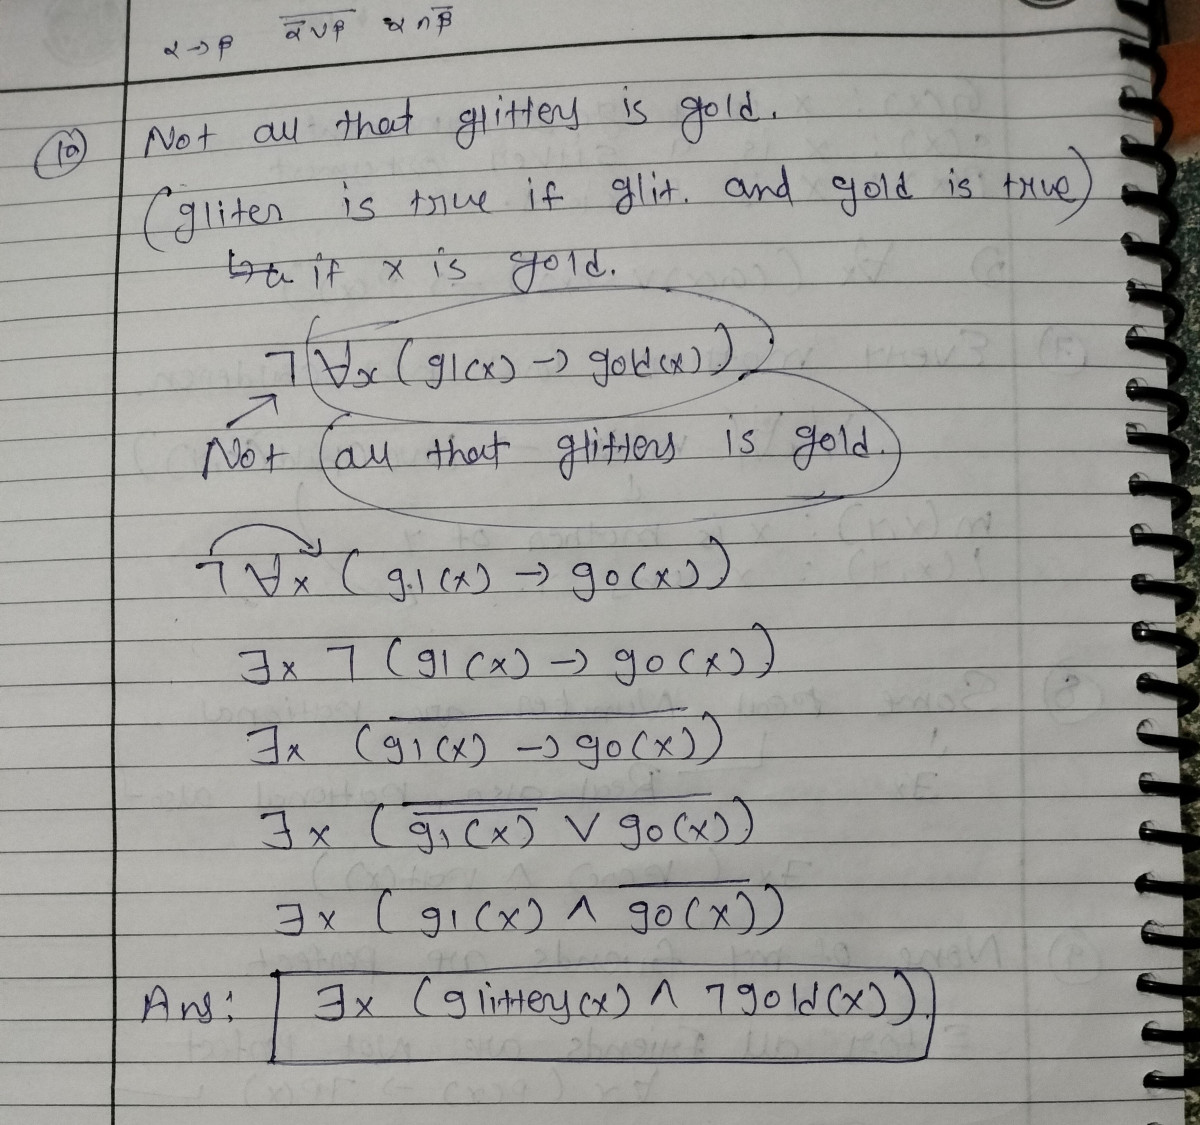 α→β α̅∨β α∧β̅
(10) Not all that glittery is gold.
(gliter is true if glit. and gold is true)
if x is gold.
¬∀x (gl(x) → gold(x))
Not (all that glitters is gold.)
¬∀x (gl(x) → go(x))
∃x ¬ (gl(x) → go(x))
∃x (g̅l̅(̅x̅)̅ ̅→̅ ̅g̅o̅(̅x̅)̅)
∃x (g̅l̅(̅x̅)̅ ∨ go(x))
∃x (gl(x) ∧ g̅o̅(̅x̅)̅)
Ans: ∃x (glittery(x) ∧ ¬gold(x)).